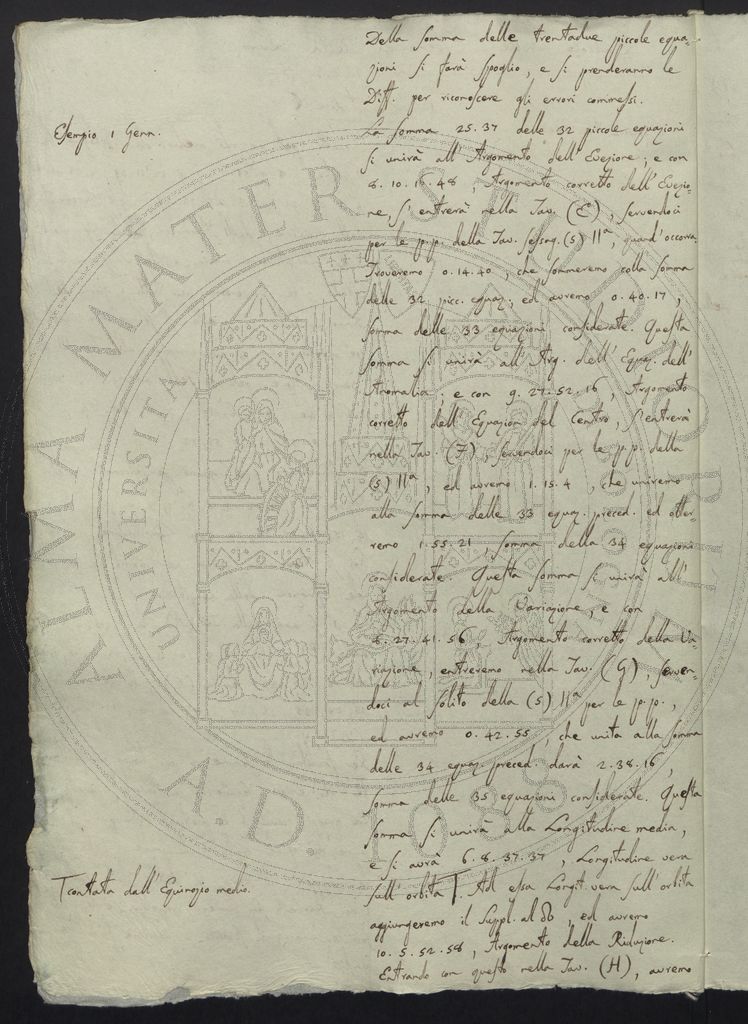 Della somma delle trentadue piccole equa-
zioni si farà spoglio, e si prenderanno le
Diff. per riconoscere gli errori commessi.
Esempio 1 Genn.
La somma 25.37 delle 32 piccole equazioni
si unirà all'Argomento dell'Evezione; e con
8.10.16.48, Argomento corretto dell'Evezio-
ne, s'entrerà nella Tav. (E), servendoci
per le p.p. della Tav. sessag. (5) IIª, quand'occorra.
Troveremo 0.14.40, che sommeremo colla somma
delle 32 picc. equaz.; ed avremo 0.40.17,
somma delle 33 equazioni considerate. Questa
somma si unirà all'Arg. dell'Equaz. dell'
Anomalia; e con 9.27.52.16, Argomento
corretto dell'Equazion del Centro, s'entrerà
nella Tav. (F), servendoci per le p.p. della
(5) IIª, ed avremo 1.15.4, che uniremo
alla somma delle 33 equaz. preced. ed otter-
remo 1.55.21, somma della 34 equazioni
considerate. Questa somma si unirà all'
Argomento della Variazione, e con
8.27.41.56, Argomento corretto della Va-
riazione, entreremo nella Tav. (G), serven-
doci al solito della (5) IIª per le p.p.,
ed avremo 0.42.55, che unita alla somma
delle 34 equaz. preced. darà 2.38.16,
somma delle 35 equazioni considerate. Questa
somma si unirà alla Longitudine media,
e si avrà 6.8.37.37, Longitudine vera
sull'orbita T. Ad essa Longit. vera sull'orbita
T contata dall'Equinozio medio.
aggiungeremo il Suppl. al ☊, ed avremo
10.5.52.58, Argomento della Riduzione.
Entrando con questo nella Tav. (H), avremo
ALMA MATER STUDIORUM
UNIVERSITA
A.D. 1088